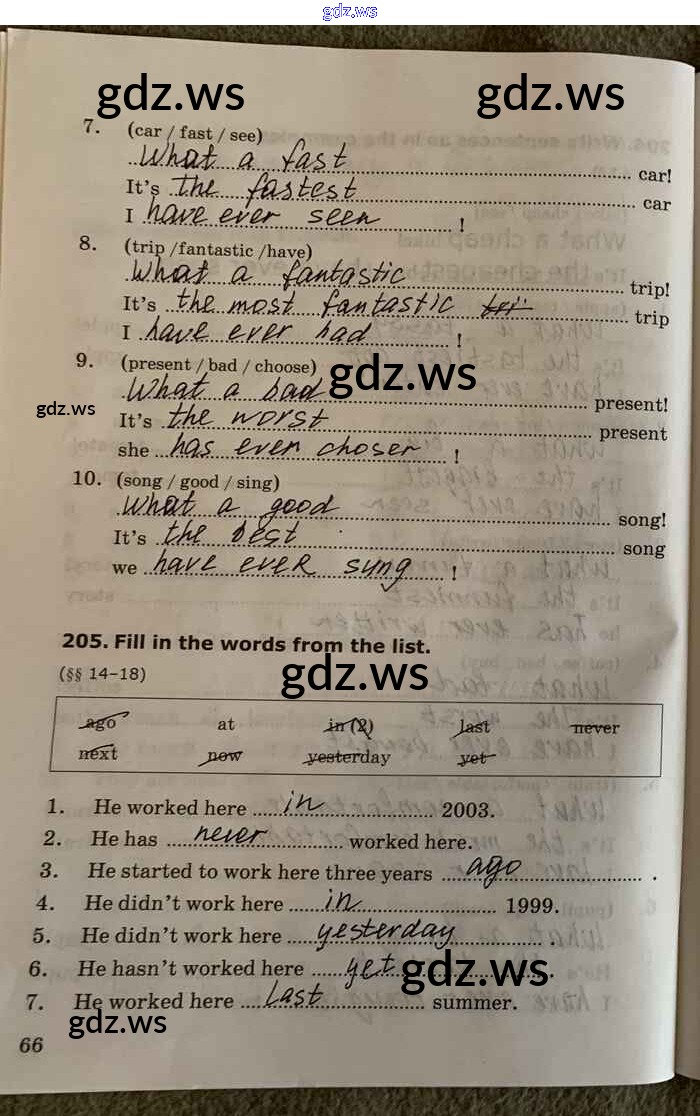 gdz.ws
gdz.ws gdz.ws
7. (car / fast / see)
What a fast car!
It's the fastest car
I have ever seen !
8. (trip /fantastic /have)
What a fantastic trip!
It's the most fantastic trip
I have ever had !
9. (present / bad / choose)
gdz.ws
What a bad present!
gdz.ws
It's the worst present
she has ever choser !
10. (song / good / sing)
What a good song!
It's the best song
we have ever sung !
205. Fill in the words from the list.
(§§ 14–18)
gdz.ws
ago at in (2) last never
next now yesterday yet
1. He worked here in 2003.
2. He has never worked here.
3. He started to work here three years ago .
4. He didn't work here in 1999.
5. He didn't work here yesterday .
6. He hasn't worked here yet .
gdz.ws
7. He worked here last summer.
gdz.ws
66